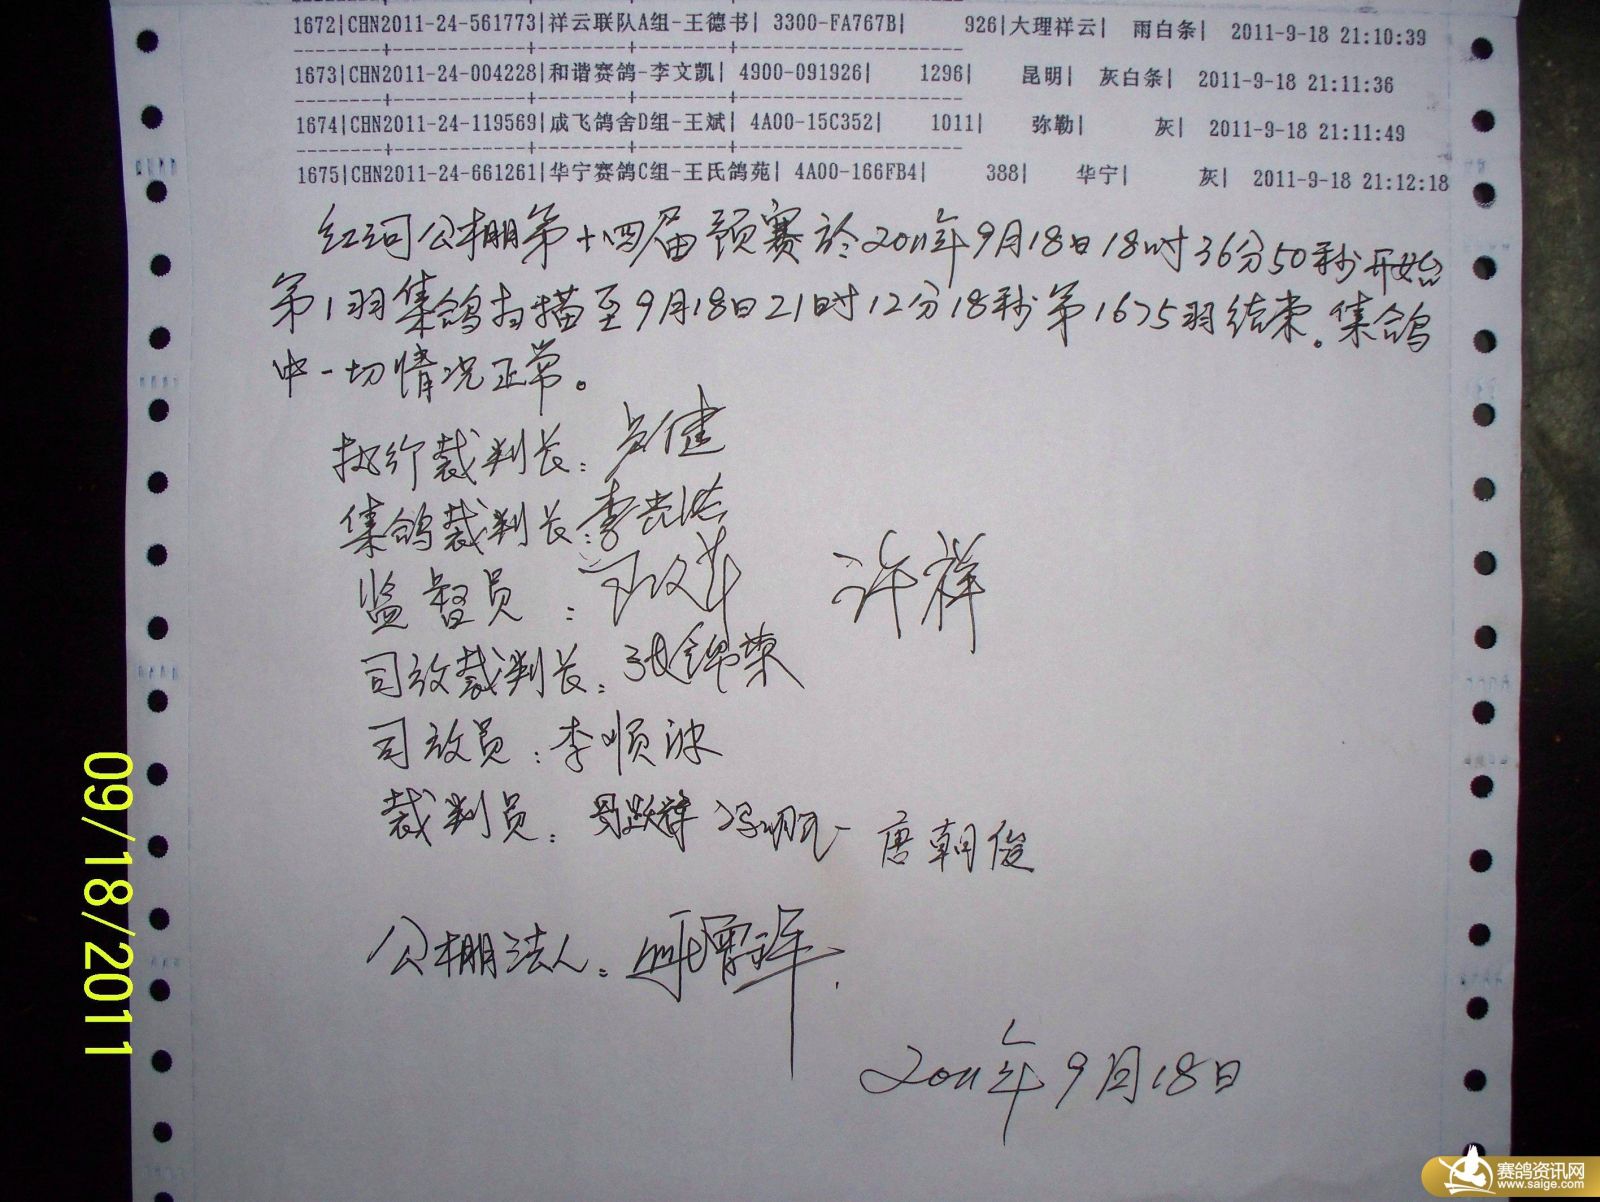 1672|CHN2011-24-561773|祥云联队A组-王德书| 3300-FA767B| 926|大理祥云| 雨白条| 2011-9-18 21:10:39
1673|CHN2011-24-004228|和谐赛鸽-李文凯| 4900-091926| 1296| 昆明| 灰白条| 2011-9-18 21:11:36
1674|CHN2011-24-119569|成飞鸽舍D组-王斌| 4A00-15C352| 1011| 弥勒| 灰| 2011-9-18 21:11:49
1675|CHN2011-24-661261|华宁赛鸽C组-王氏鸽苑| 4A00-166FB4| 388| 华宁| 灰| 2011-9-18 21:12:18
红河公棚第十四届预赛於2011年9月18日18时36分50秒开始
第1羽集鸽扫描至9月18日21时12分18秒第1675羽结束。集鸽
中一切情况正常。
执行裁判长：
集鸽裁判长：李
监督员： 许祥
司放裁判长：张锦荣
司放员：李顺波
裁判员： 唐朝俊
公棚法人：
2011年9月18日
09/18/2011
赛鸽资讯网
www.saige.com